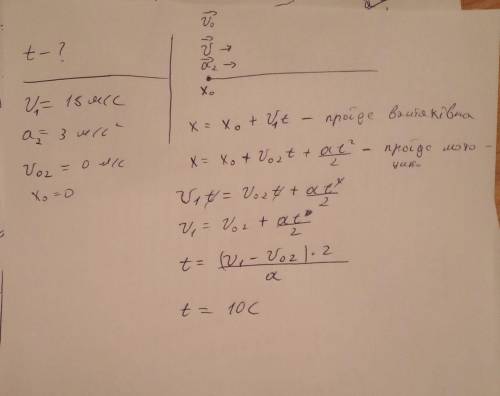 t - ?
V₁ = 15 м/с
a₂ = 3 м/с²
V₀₂ = 0 м/с
x₀ = 0
v⃗₀
v⃗ →
a⃗₂ →
x₀
x = x₀ + V₁t - проїде вантажівка
x = x₀ + V₀₂t + at²/2 - проїде мото-
цик.
V₁t = V₀₂t + at²/2
V₁ = V₀₂ + at/2
t = (V₁ - V₀₂) · 2 / a
t = 10 с